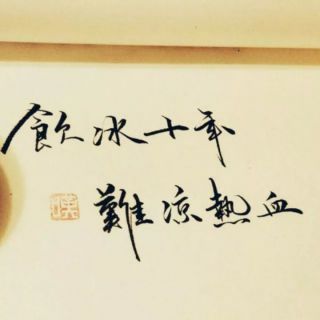 飲冰十年
難涼熱血